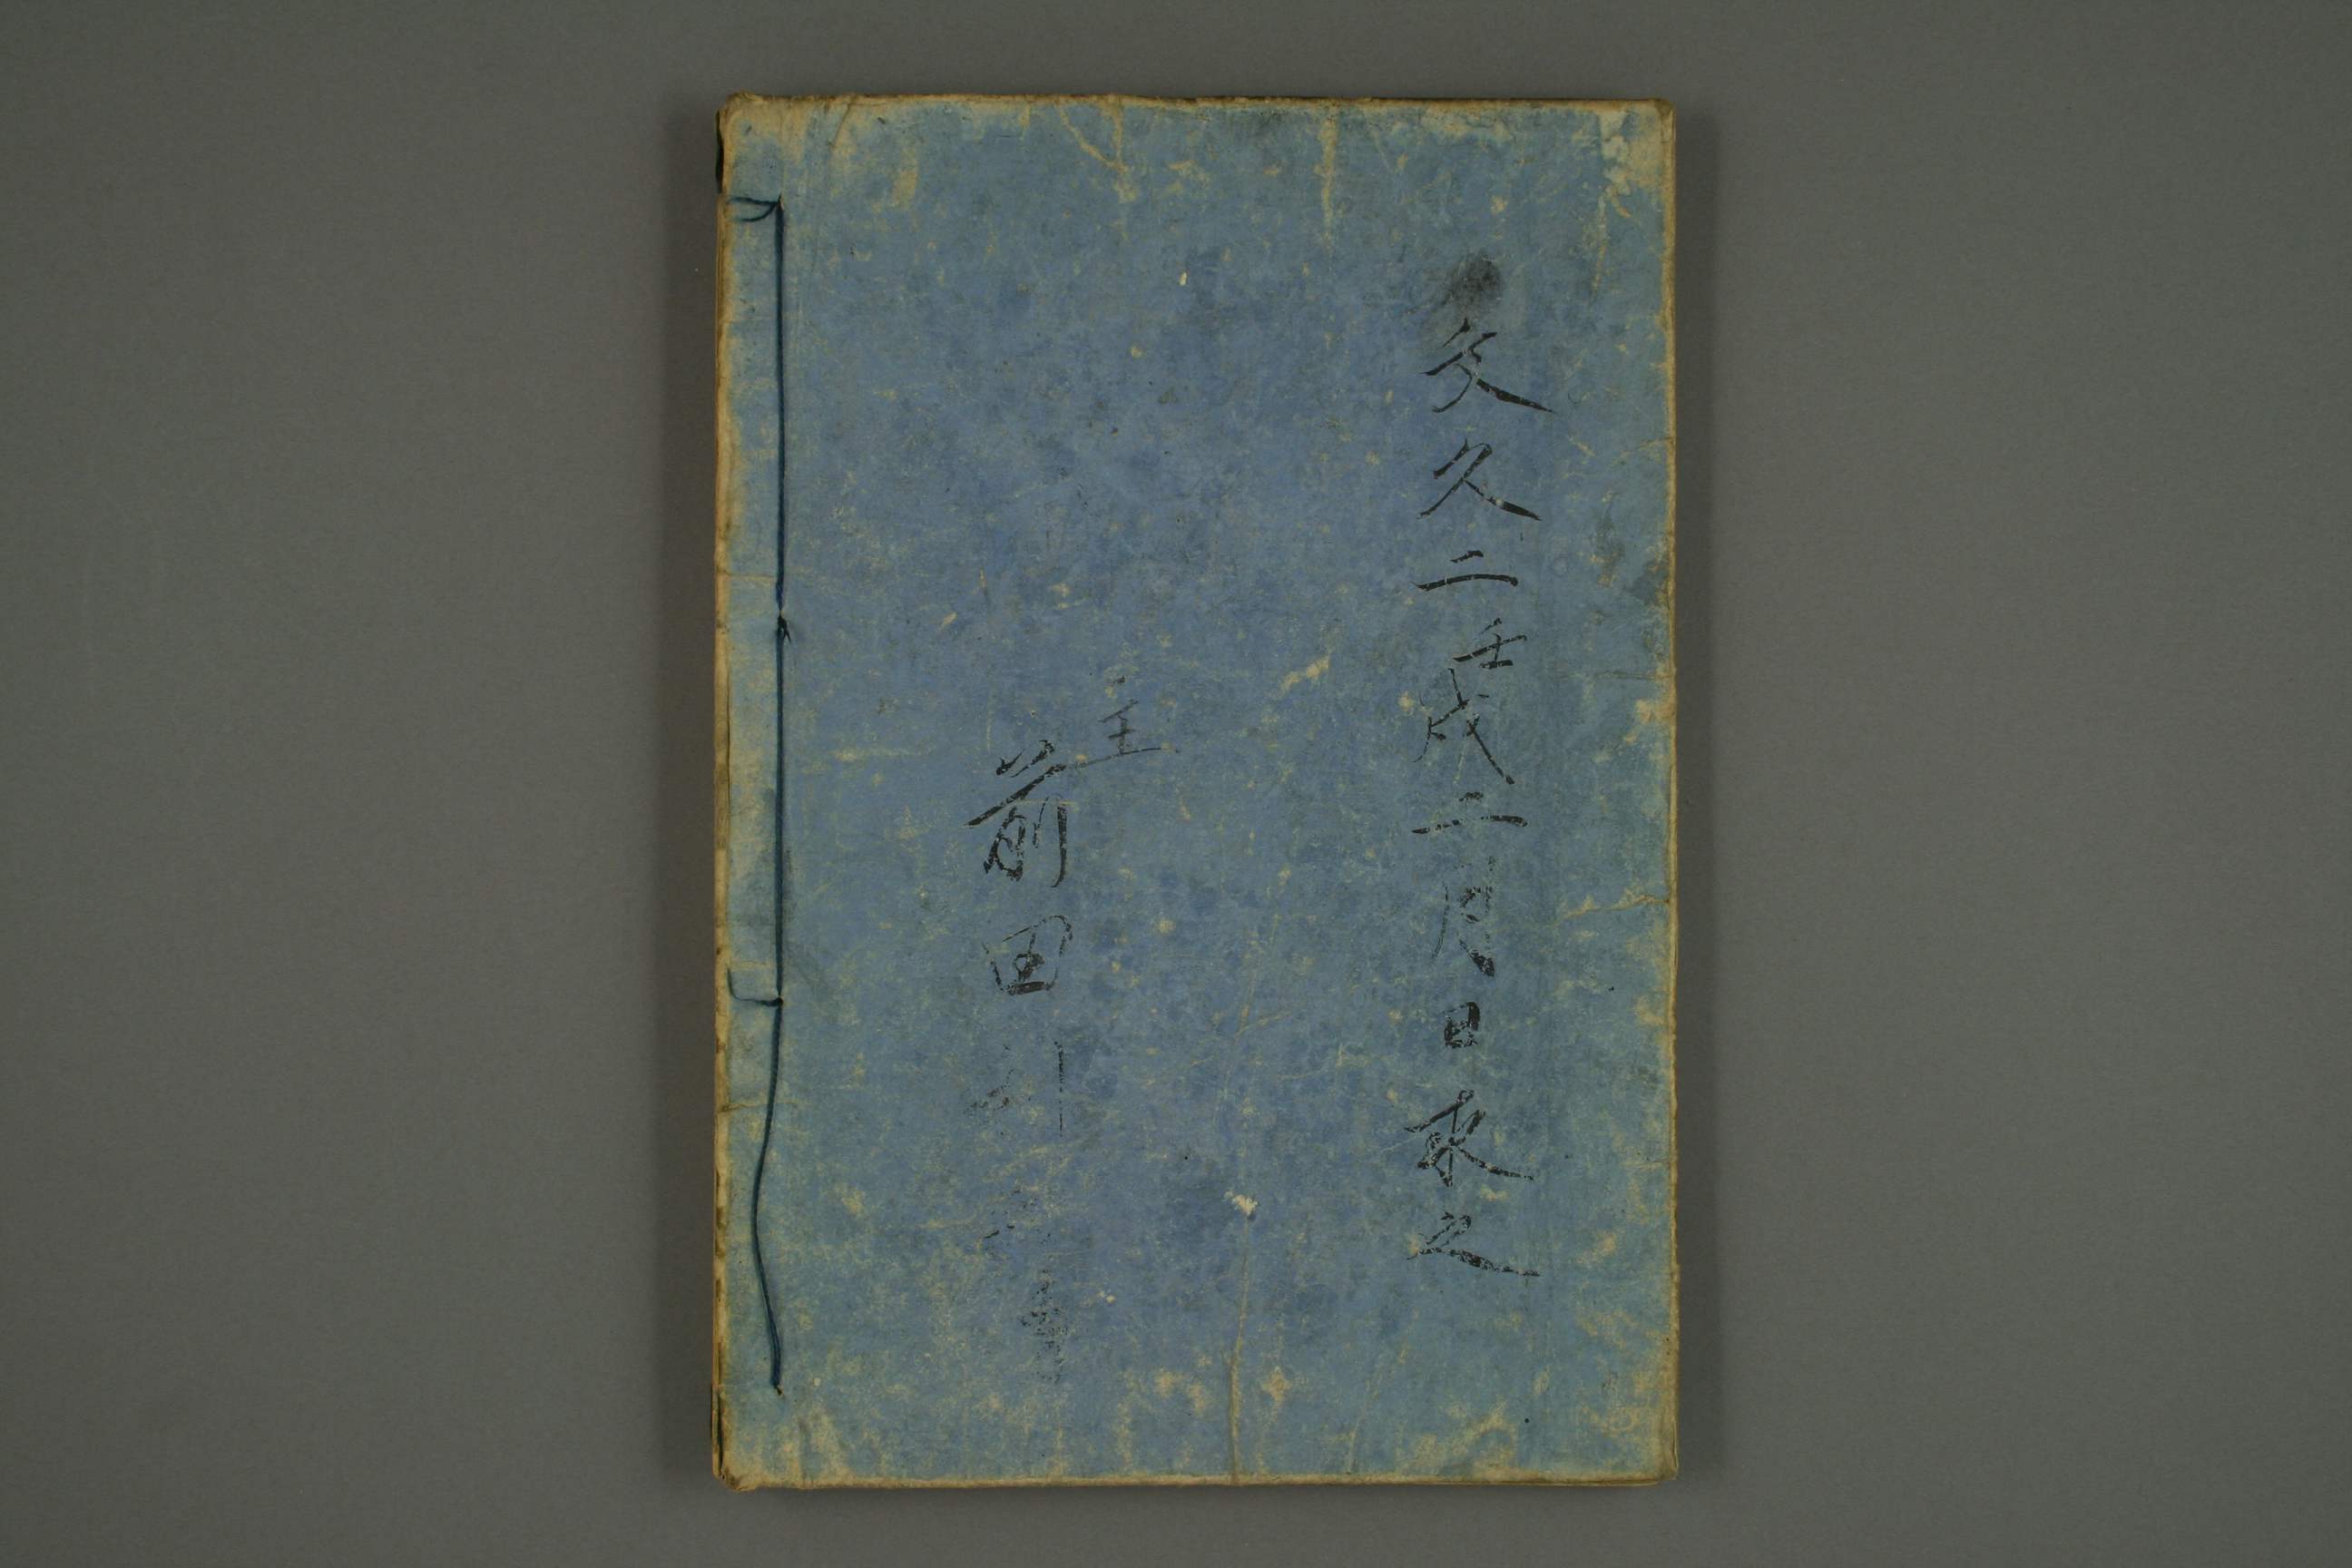 文久二壬戌二月日求之
主
前田